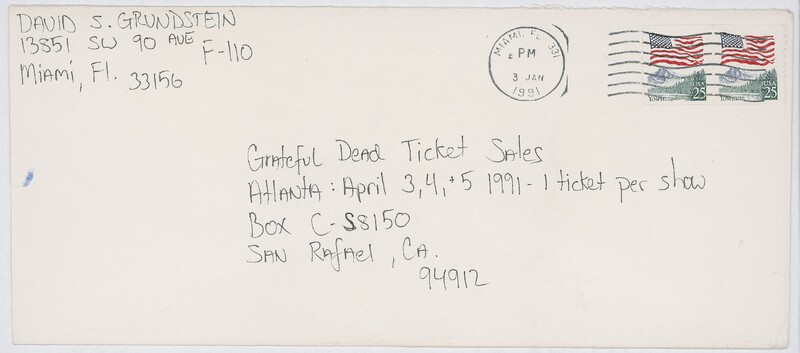 DAVID S. GRUNDSTEIN
13851 SW 90 AVE
F-110
MIAMI, Fl. 33156
MIAMI, FL 331
PM
3 JAN
1991
USA 25
Yosemite
USA 25
Yosemite
Grateful Dead Ticket Sales
Atlanta: April 3,4,+5 1991 - 1 ticket per show
Box C-S8150
San Rafael, CA.
94912